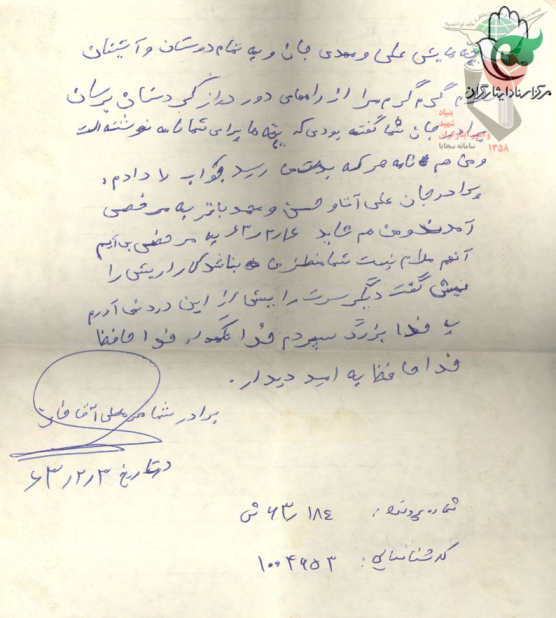 بچه هایش علی و مهدی جان و به تمام دوستان و آشنایان
گرم گرم مرا از راههای دور دراز کردستان برسان
برادر جان شما گفته بودی که بچه ها برای شما نامه نوشته اند
و من هم نامه هر که بدستم رسید جواب را دادم،
برادر جان علی آقا و حسن و محمد باقر به مرخصی
آمدند و من هم شاید ۶۳/۲/۱۶ به مرخصی بیایم
آنهم ملازم نیست شما منتظر ما نباشد کار ارتش را
دیگر سرت را بیش از این درد نمی آورم
به خدا بزرگ سپردم خدا نگهدار خدا حافظ
خدا حافظ به امید دیدار.
برادر شما علی آقا
در تاریخ ۶۳/۲/۳
شماره پرونده: ۱۸۴ /۶۳ ش
کد شناسایی: ۱۰۰۴۶۵۳
مرکز اسناد ایثارگران
بنیاد
شهید
و امور ایثارگران
سامانه سجایا
۱۳۵۸